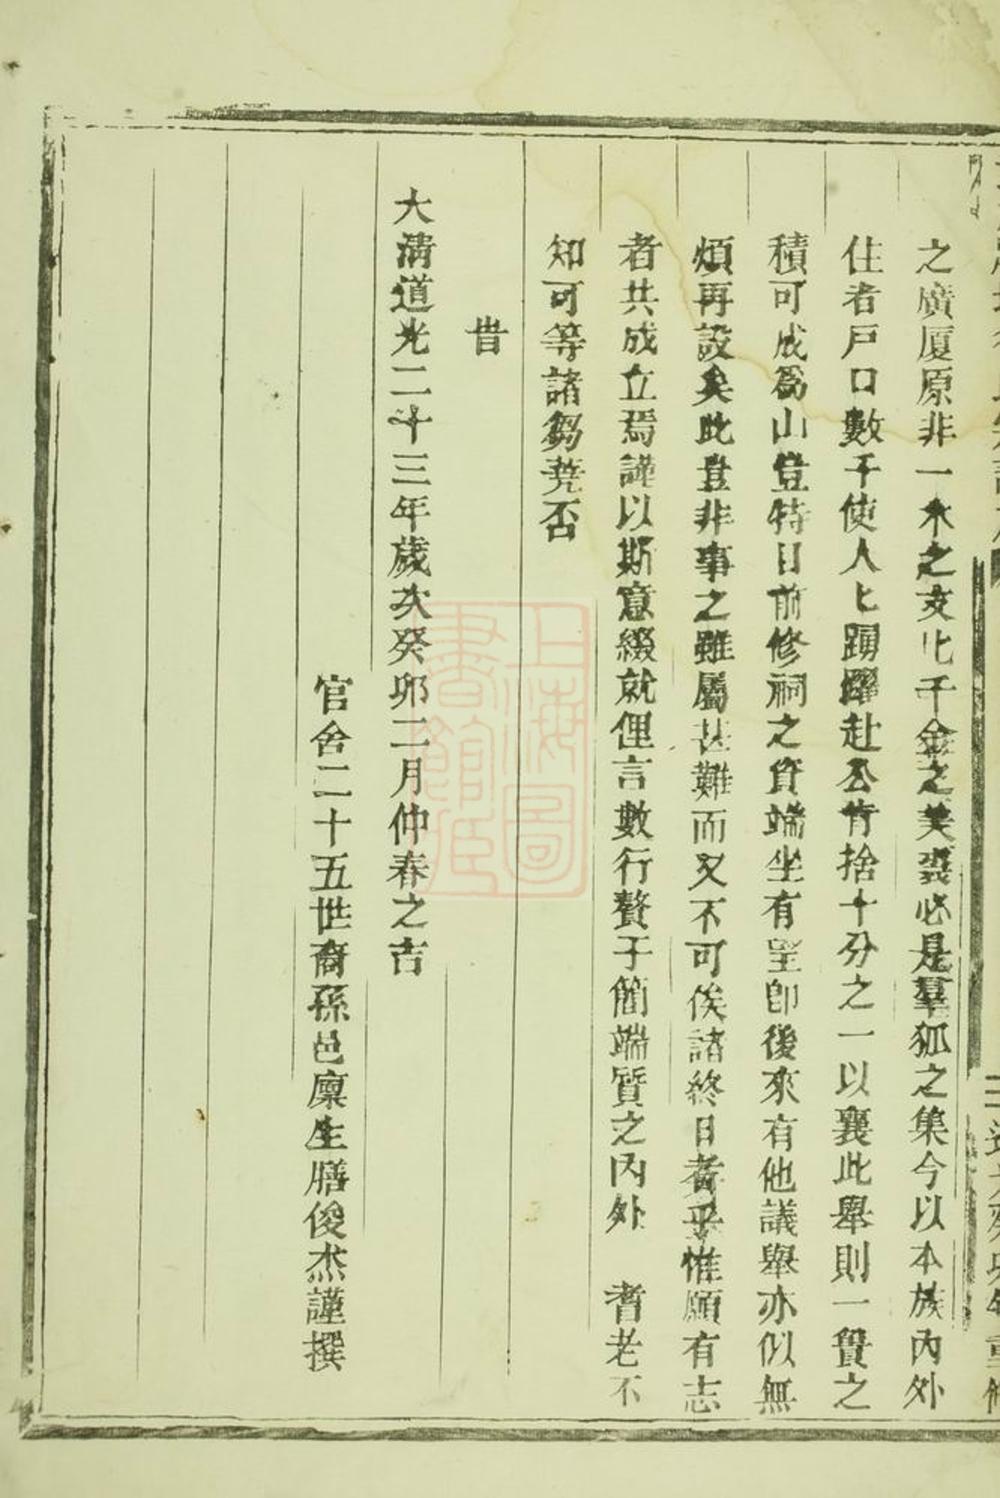 三 道光癸卯年重修
之廣厦原非一木之支化千金之美裘必是羣狐之集今以本族內外
住者戸口數千使人匕踴躍赴公肯捨十分之一以襄此舉則一簣之
積可成爲山豈特日前修祠之資端坐有望卽後來有他議舉亦似無
煩再設矣此豈非事之雖屬甚難而又不可俟諸終日者乎惟願有志
者共成立焉謹以斯意綴就俚言數行贅于簡端質之內外　耆老不
知可等諸芻蕘否
旹
大清道光二十三年歲次癸卯二月仲春之吉
官舍二十五世裔孫邑廩生膳俊杰謹撰
上海圖書館藏